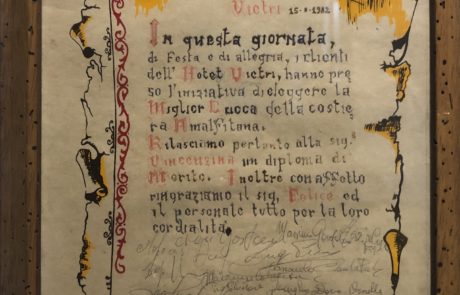 Vietri 15-8-1982
In questa giornata,
di Festa e di allegria, i clienti
dell' Hotel Vietri, hanno pre
so l'iniziativa di eleggere la
Miglior Cuoca della costie
ra Amalfitana.
Rilasciamo pertanto alla sig.
Vincenzina un diploma di
Merito. Inoltre con affetto
ringraziamo il sig. Felice ed
il personale tutto per la loro
cordialità.